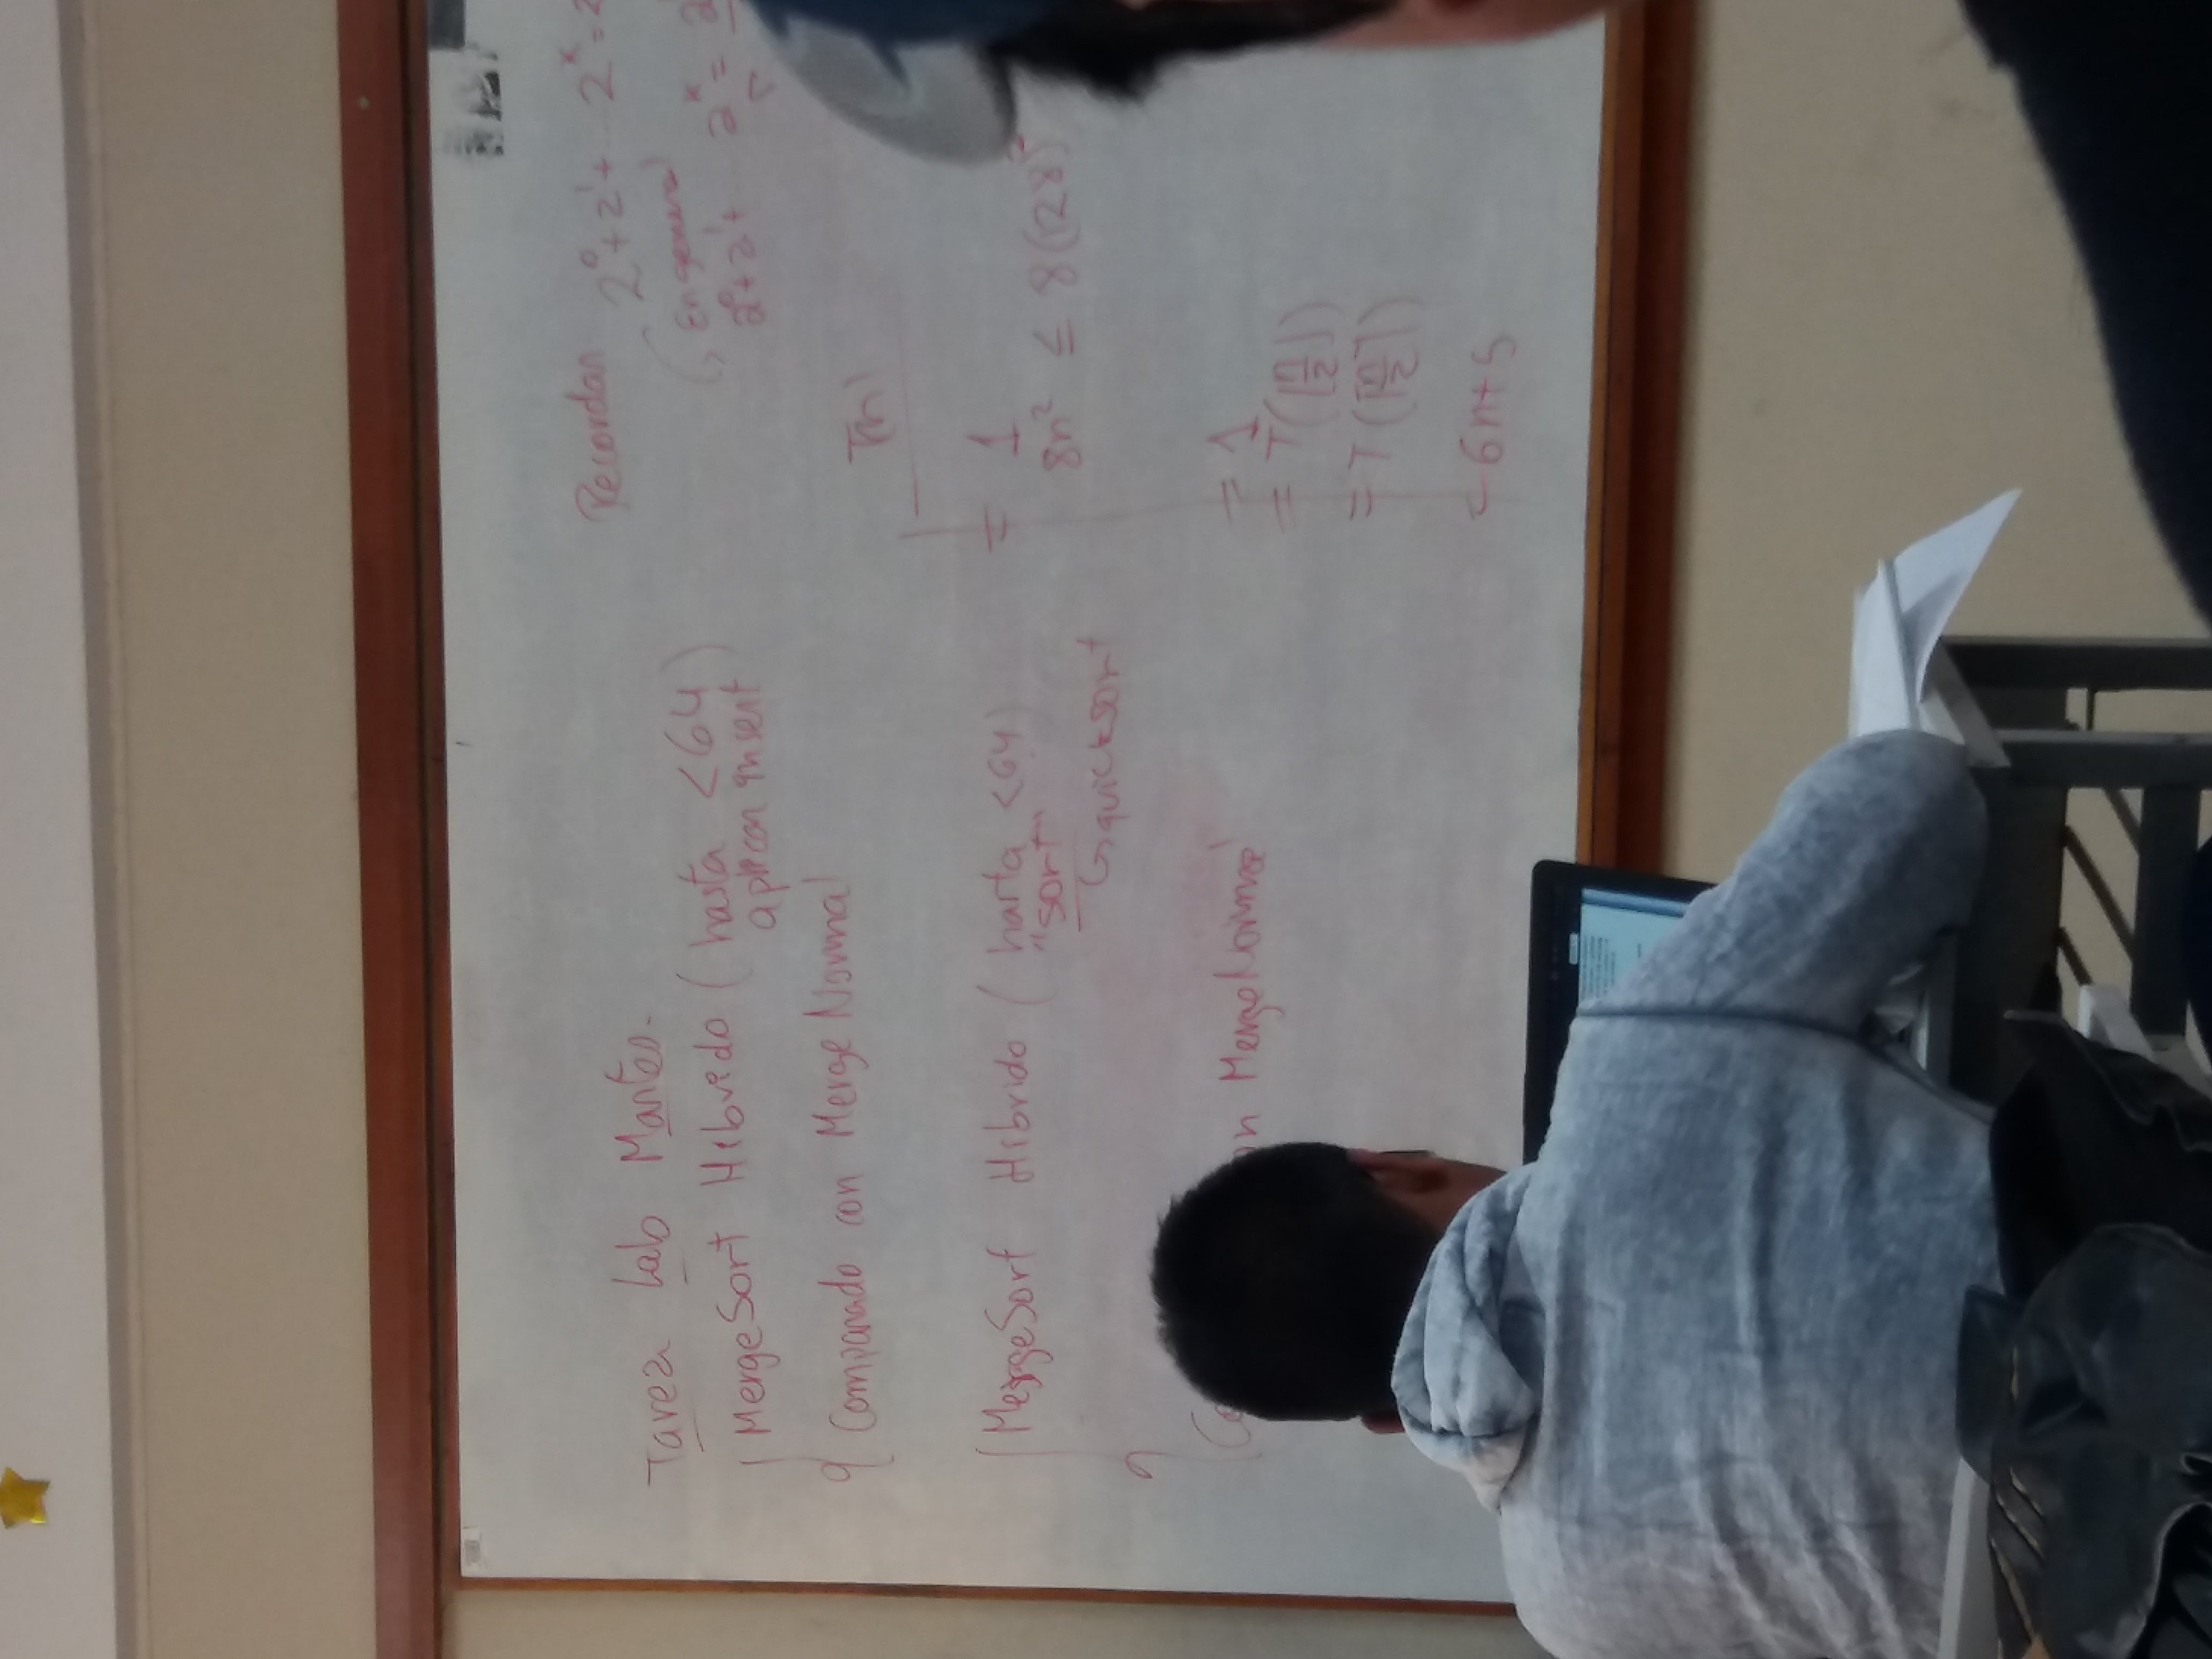 Tarea Lab Martes.
MergeSort Hibrido ( hasta <64 )
aplican insert
Comparado con Merge Normal
MergeSort Hibrido ( hasta <64)
"sort"
↳ quicksort
MergeNormal
Recordar 2⁰+2¹+ 2ˣ=
En general
2⁰+2¹+ 2ˣ=
T(n)
= 1
8n² ≤ 8(128)²
= 1
= T(⌊n/2⌋)
= T(⌈n/2⌉)
= 6n+5